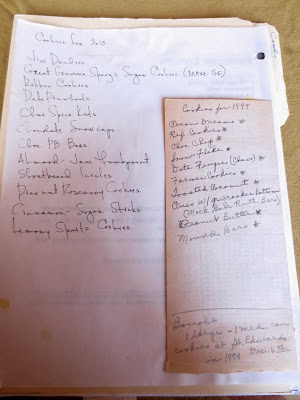 Cookies for 2013
Jim Dandies
Great Gramma Spivy's Sugar Cookies (Make GC)
Ribbon Cookies
Date Pinwheels
Choc Spice Kids
Chocolate Snowcaps
Choc PB Bars
Almond-Jam Thumbprint
Shortbread Icicles
Pine and Rosemary Cookies
Cinnamon-Sugar Sticks
Lemony Spritz Cookies
Cookies for 1999
Pecan Dreams *
Ref. Cookies *
Choc Chip *
Snow Flake *
Date Fingers (Chews) *
Farmer Cookies *
Toasted Coconut *
Ones w/ gr. cracker bottom
(Mock Babe Ruth Bars)
Peanut Butter *
Mounds Bars *
Bought
1 large + 1 med. can
cookies at St. Edwards
in 1999 Dec. 6th